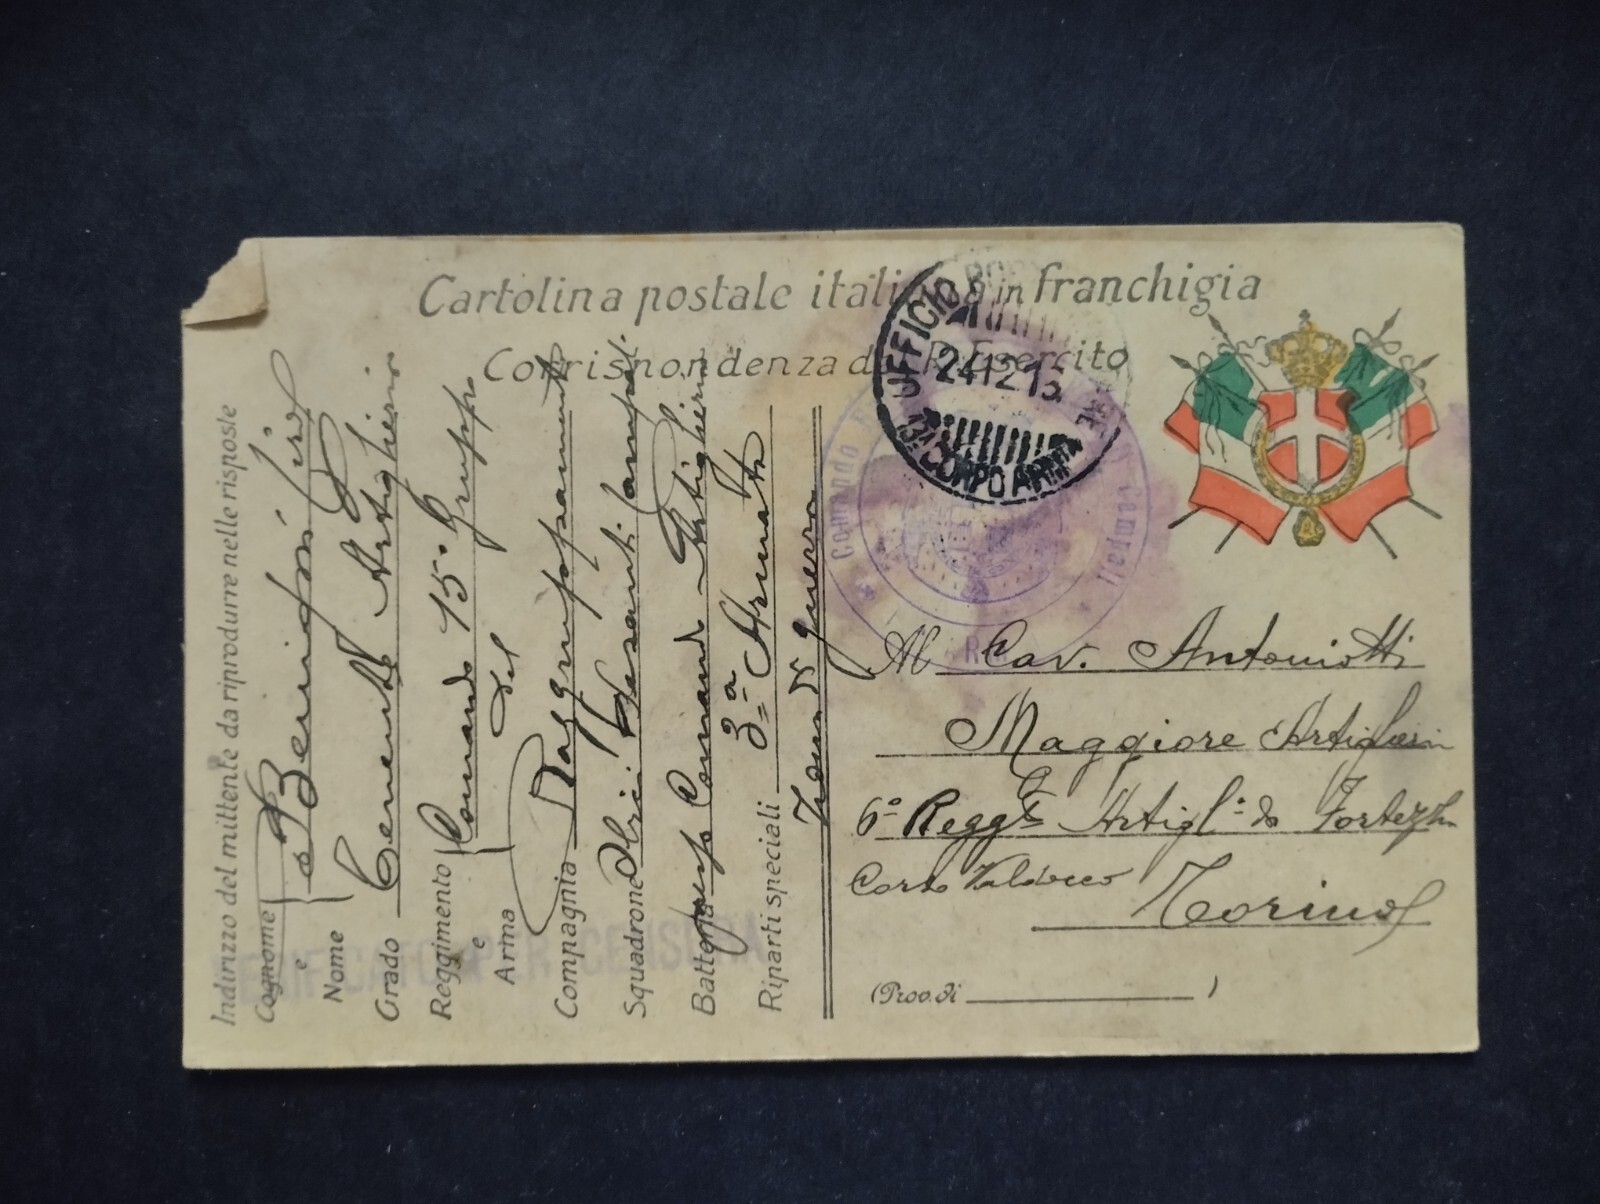 Cartolina postale italiana in franchigia
Corrispondenza del R. Esercito
UFFICIO
24.12.15
VI CORPO ARMATA
Comando
Indirizzo del mittente da riprodurre nelle risposte
Cognome
e
Nome
Grado Tenente Artiglieria
Reggimento Comando 15º Gruppo
e
Arma del
Compagnia Raggruppamento
Squadrone Obici Pesanti Campali
Batteria presso Comando Artiglieria
Riparti speciali 3ª Armata
Zona di Guerra
VERIFICATO PER CENSURA
Al Cav. Antoniotti
Maggiore Artiglieria
6º Reggto Artigl. da Fortezza
Corso Valdocco
Torino
(Prov. di )